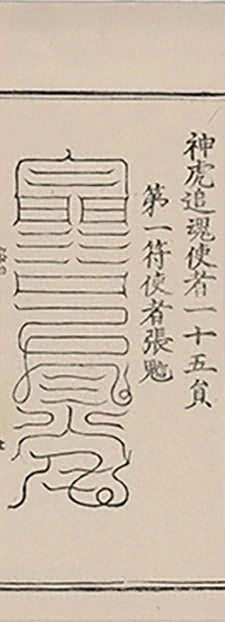 神虎追魂使者一十五員
第一符使者張